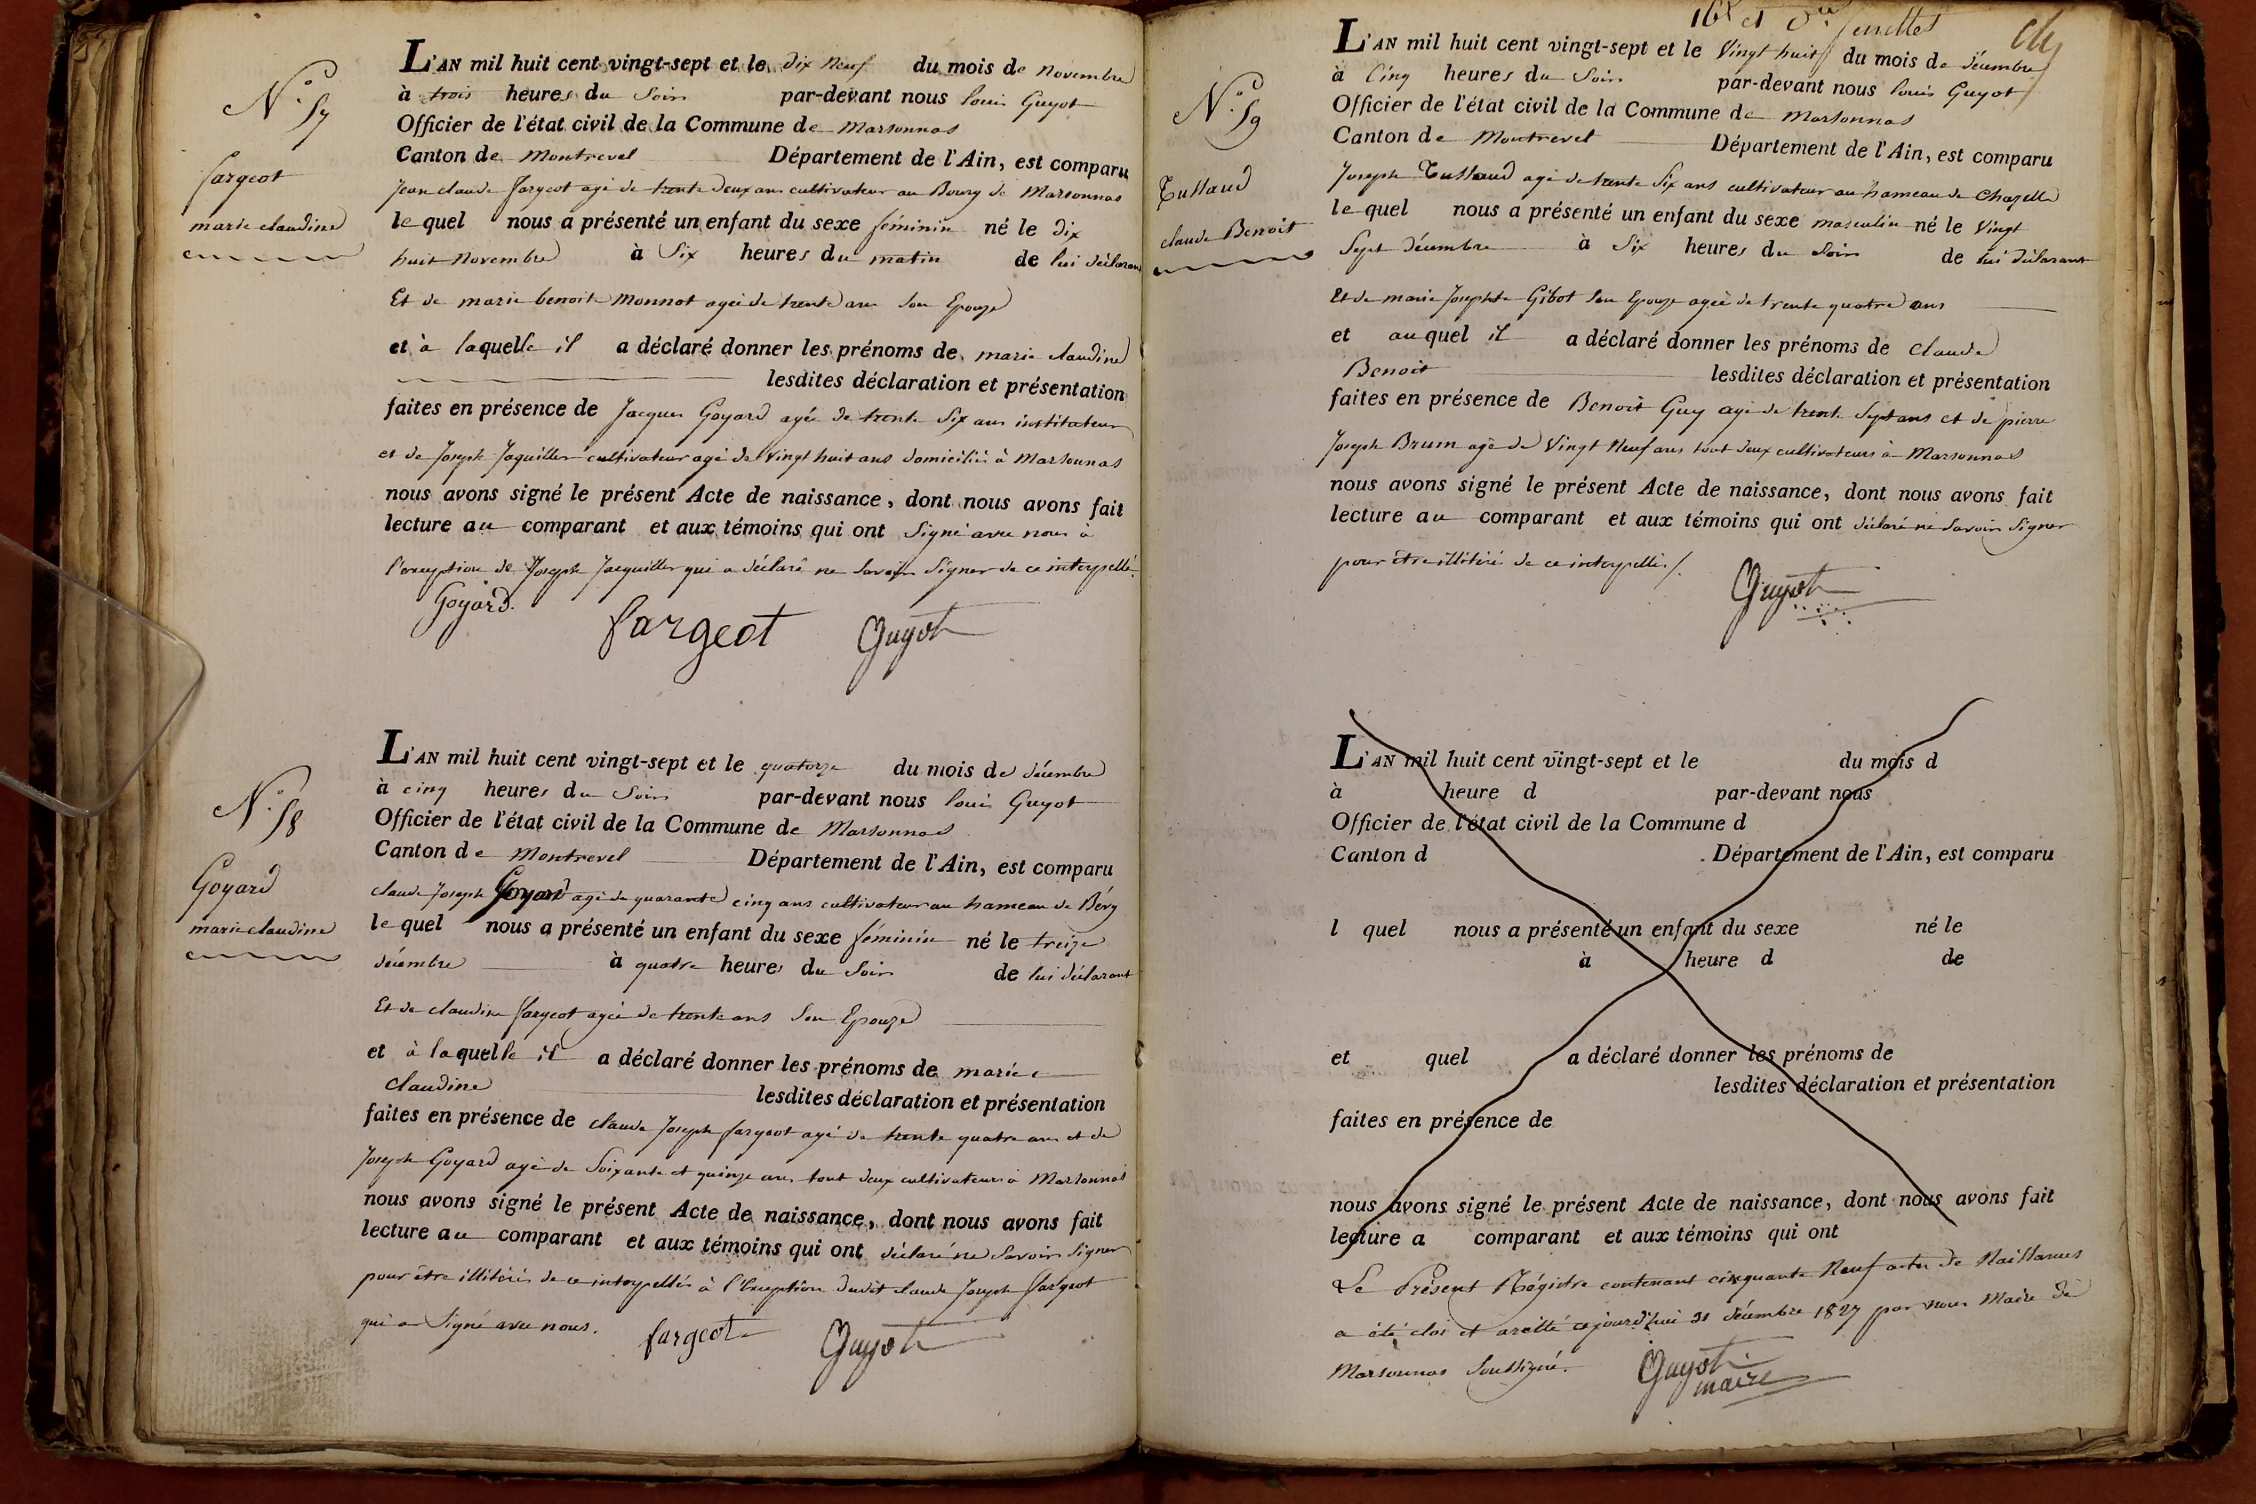 N.° 57
fargeot
marie claudine
L'AN mil huit cent vingt-sept et le dix neuf du mois de novembre
à trois heures du soir par-devant nous louis Guyot
Officier de l'état civil de la Commune de marsonnas
Canton de montrevel Département de l'Ain, est comparu
jean claude fargeot agé de trente deux ans cultivateur au Bourg de marsonnas
le quel nous a présenté un enfant du sexe féminin né le dix
huit novembre à six heures du matin de lui déclarant
Et de marie benoite monnot agée de trente ans son Epouze
et à laquelle il a déclaré donner les prénoms de marie claudine
lesdites déclaration et présentation
faites en présence de jacques Goyard agée de trente six ans instituteur
et de joseph jaquiller cultivateur agé de vingt huit ans domiciliés à marsonnas
nous avons signé le présent Acte de naissance, dont nous avons fait
lecture au comparant et aux témoins qui ont signé avec nous à
l'exception de joseph jacquiller qui a déclaré ne savoir signer de ce interpellé.
Goyard. fargeot Guyot
N.° 58
Goyard
marie claudine
L'AN mil huit cent vingt-sept et le quatorze du mois de décembre
à cinq heures du soir par-devant nous louis Guyot
Officier de l'état civil de la Commune de marsonnas
Canton de montrevel Département de l'Ain, est comparu
claude joseph Goyard agé de quarante cinq ans cultivateur au hameau de Bévy
le quel nous a présenté un enfant du sexe féminin né le treize
décembre à quatre heures du soir de lui déclarant
Et de claudine fargeot agée de trente ans son Epouze
et à laquelle il a déclaré donner les prénoms de marie
claudine lesdites déclaration et présentation
faites en présence de claude joseph fargeot agé de trente quatre ans et de
joseph Goyard agé de soixante et quinze ans tout deux cultivateurs à marsonnas
nous avons signé le présent Acte de naissance, dont nous avons fait
lecture au comparant et aux témoins qui ont déclaré ne savoir signer
pour être illitérés de ce interpellés à l'Exception dudit claude joseph fargeot
qui a signé avec nous. fargeot Guyot
16.e et feuillet
N.° 59
Tussaud
claude Benoit
L'AN mil huit cent vingt-sept et le vingt huit du mois de décembre
à cinq heures du soir par-devant nous louis Guyot
Officier de l'état civil de la Commune de marsonnas
Canton de montrevel Département de l'Ain, est comparu
joseph Tussaud agé de trente six ans cultivateur au hameau de chazelle
le quel nous a présenté un enfant du sexe masculin né le vingt
sept décembre à six heures du soir de lui déclarant
Et de marie josephte Gibot son Epouze agée de trente quatre ans
et auquel il a déclaré donner les prénoms de claude
Benoit lesdites déclaration et présentation
faites en présence de Benoit Guy agé de trente sept ans et de pierre
joseph Brum agé de vingt neuf ans tout deux cultivateurs à marsonnas
nous avons signé le présent Acte de naissance, dont nous avons fait
lecture au comparant et aux témoins qui ont déclaré ne savoir signer
pour être illitéré de ce interpellés /.
Guyot
L'AN mil huit cent vingt-sept et le du mois d
à heure d par-devant nous
Officier de l'état civil de la Commune d
Canton d Département de l'Ain, est comparu
l quel nous a présenté un enfant du sexe né le
à heure d de
et quel a déclaré donner les prénoms de
lesdites déclaration et présentation
faites en présence de
nous avons signé le présent Acte de naissance, dont nous avons fait
lecture a comparant et aux témoins qui ont
Le Présent Régistre contenant cinquante neuf actes de naissances
a été clos et arrêtté cejourd'hui 31 décembre 1827 par nous Maire de
marsonnas soussigné. Guyot
maire